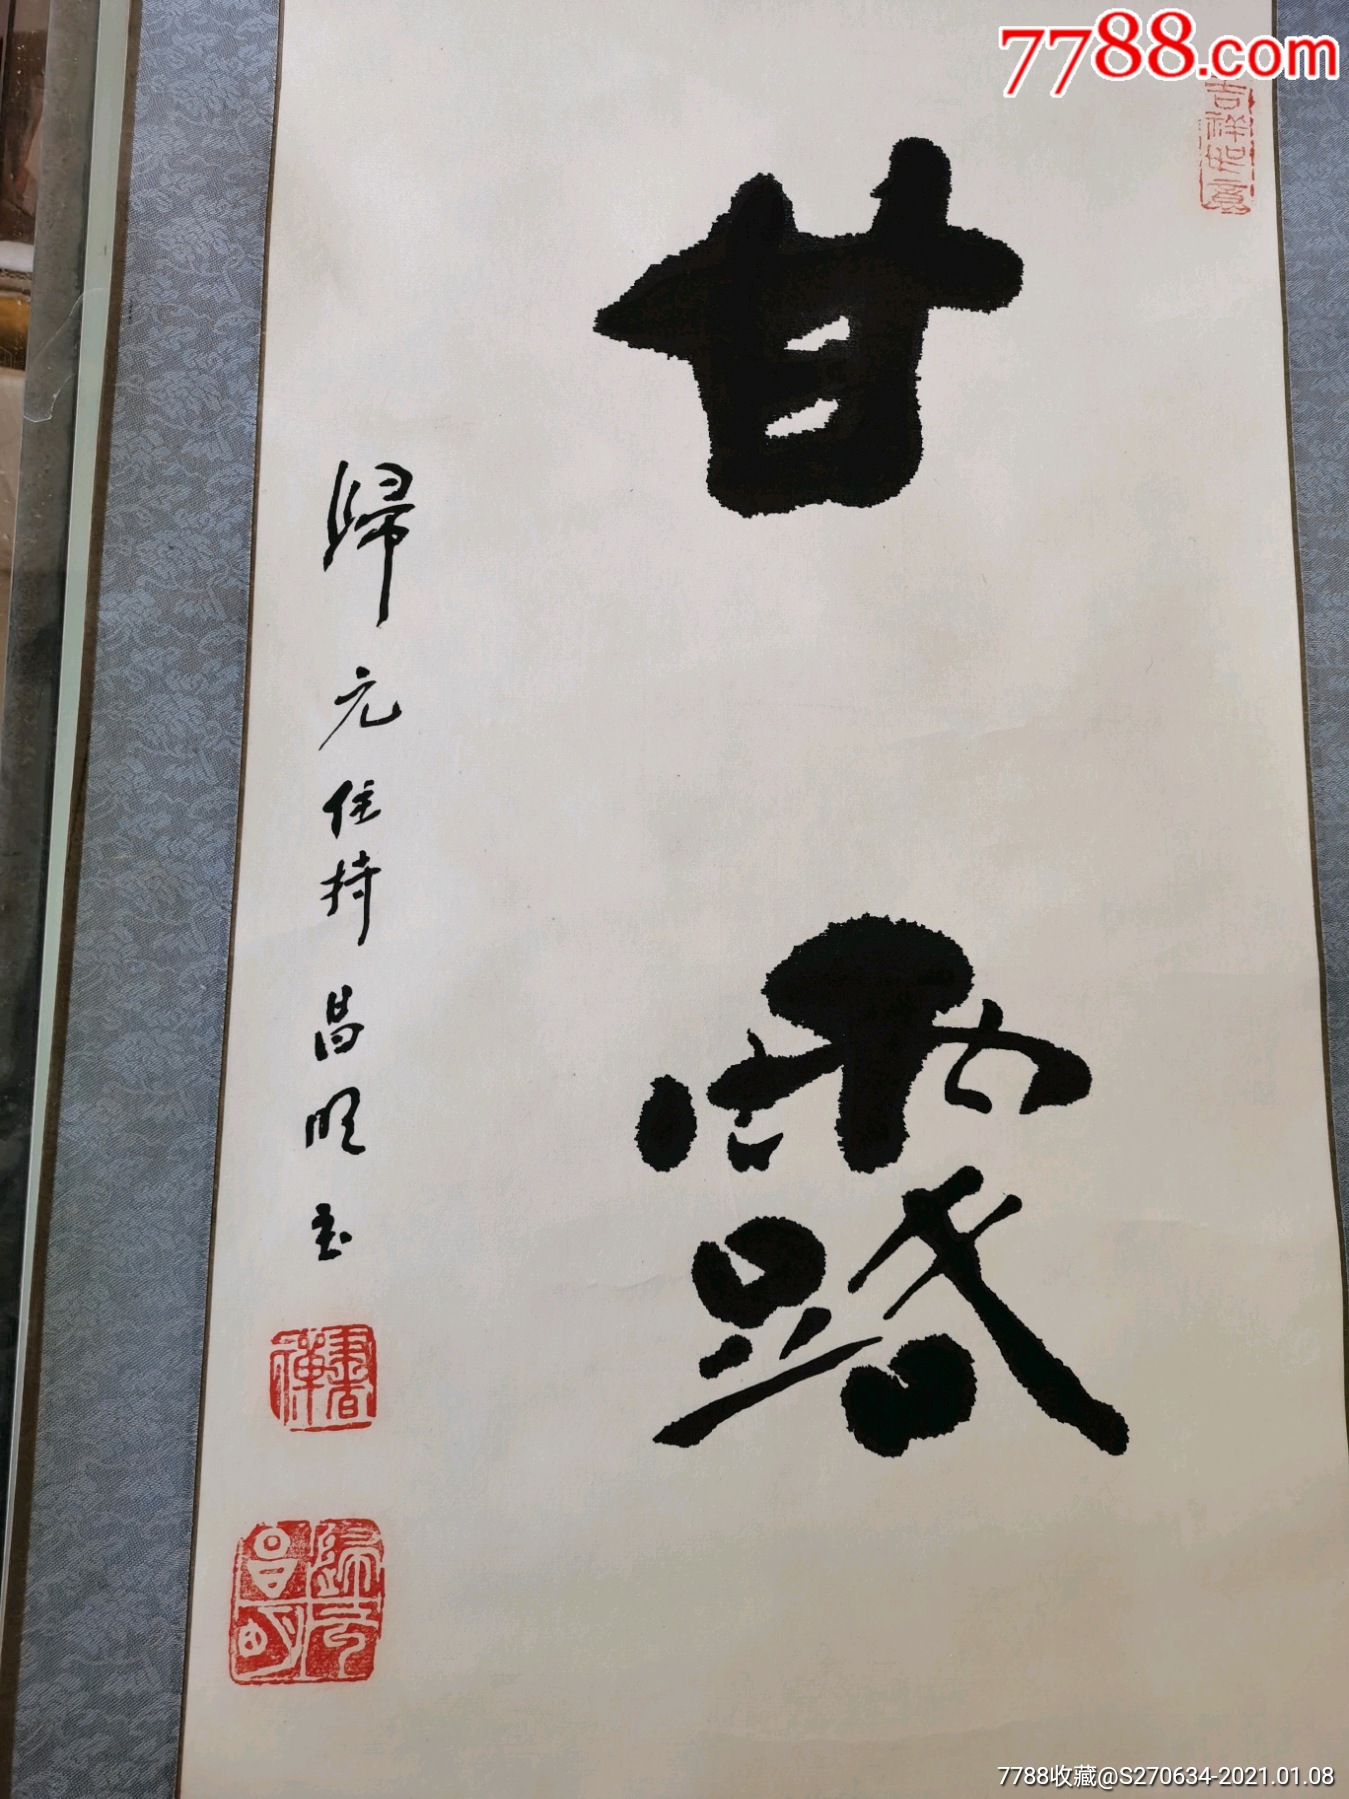 7788.com
吉祥如意
甘露
歸元住持昌明书
書禪
歸元昌明
7788收藏@S270634-2021.01.08